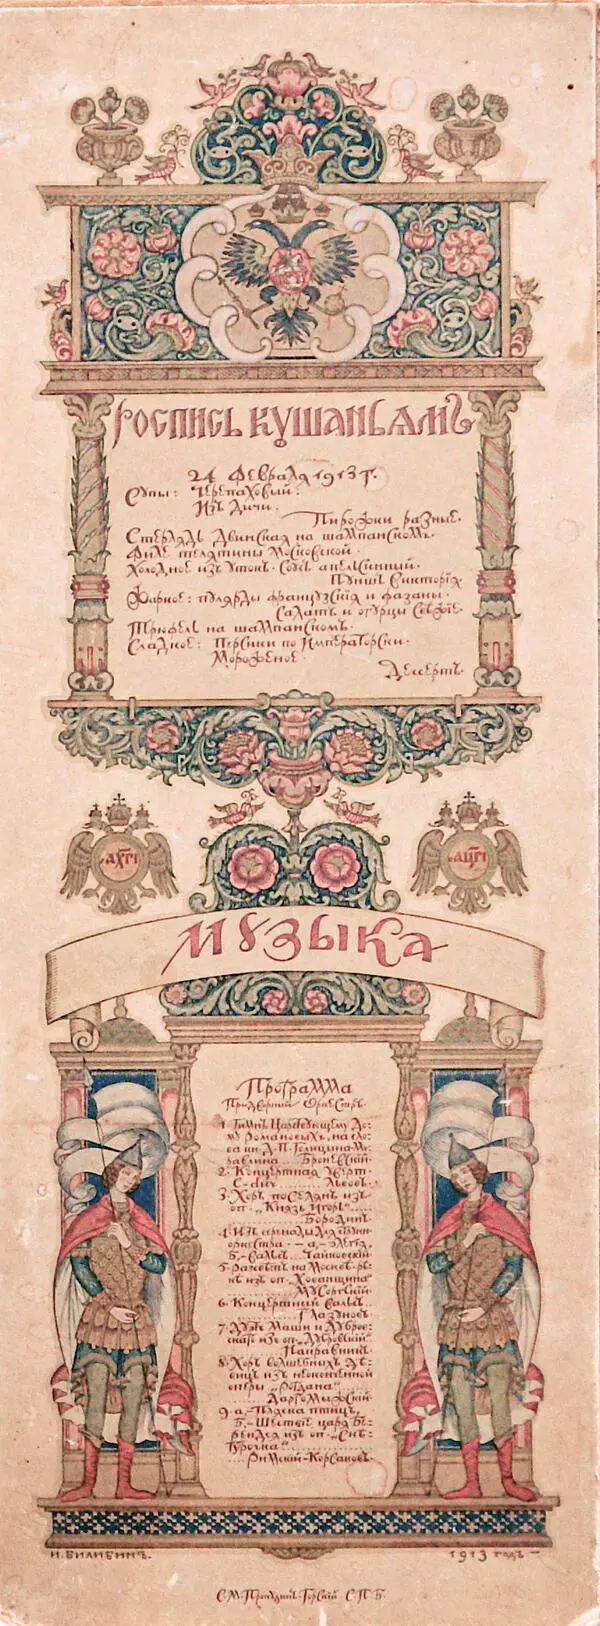 Роспись кушаньямъ
24 Февраля 1913 г.
Супы: Черепаховый.
Изъ дичи.
Пирожки разные.
Стерлядь Двинская на шампанскомъ.
Филе телятины Московской.
Холодное изъ утокъ. Соусъ апельсинный.
Пуншъ Виктория.
Жаркое: пулярды французскія и фазаны.
Салатъ и огурцы свѣжіе.
Трюфель на шампанскомъ.
Сладкое: Персики по Императорски.
Мороженое.
Дессертъ.
АХГІ АЦГІ
Музыка
Программа
Придворный Оркестръ.
1. Гимнъ Царствующему До-
му Романовыхъ, на сло-
ва кн. Д. П. Голицына-Му-
равлина... Броневскій.
2. Концертная уверт.
C-dur....... Львовъ.
3. Хоръ поселянъ изъ
оп. „Князь Игорь“.....
Бородинъ.
4. Изъ серенады для струн.
оркестра. - а,- Элегія.
Б.- Вальсъ... Чайковскій.
5. Разсвѣтъ на Москвѣ-рѣ-
кѣ изъ оп. „Хованщина“
Мусоргскій.
6. Концертный вальсъ...
Глазуновъ.
7. Дуэтъ Маши и Дубров-
скаго изъ оп. „Дубровскій“.
Направникъ.
8. Хоръ волшебныхъ дѣ-
вицъ изъ неоконченной
оперы „Рогдана“.....
Даргомыжскій.
9. а,- Пляска птицъ,
Б.- Шествіе царя Бе-
рендея изъ оп. „Снѣ-
гурочка“
Римскій-Корсаковъ.
И. БИЛИБИНЪ. 1913 годъ
С. М. Прокудинъ-Горскій С.П.Б.